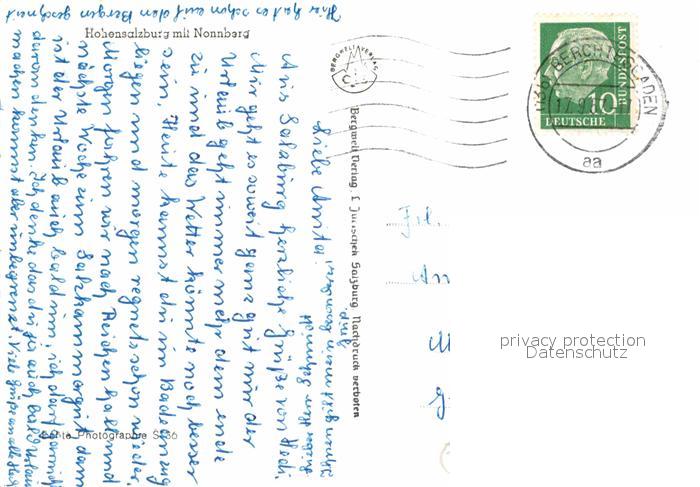 Hier hat es schon auf den Bergen geschneit
Hohensalzburg mit Nonnberg
Liebe Anita!
Aus Salzburg herzliche Grüße von Hedi.
Mir geht es soweit ganz gut nur der
Urlaub geht immer mehr dem ende
zu und das Wetter könnte noch besser
sein. Heute kannst du im Badeanzug
liegen und morgen regnets schon wieder.
Morgen fahren wir nach Reichenhall und
nächste Woche zum Salzkammergut dann
ist der Urlaub auch bald um; ich darf gar nicht
daran denken. Ich denke das du ja auch bald Urlaub
machen kannst aber unbegrenzt. Viele Grüße an alle
Echte Photographie S 56
BERGWELT VERLAG
Bergwelt Verlag, L. Jurischek Salzburg. Nachdruck verboten
BERCHTESGADEN
17.9.
aa
10
DEUTSCHE
BUNDESPOST
Frl.
An
M
G
privacy protection
Datenschutz